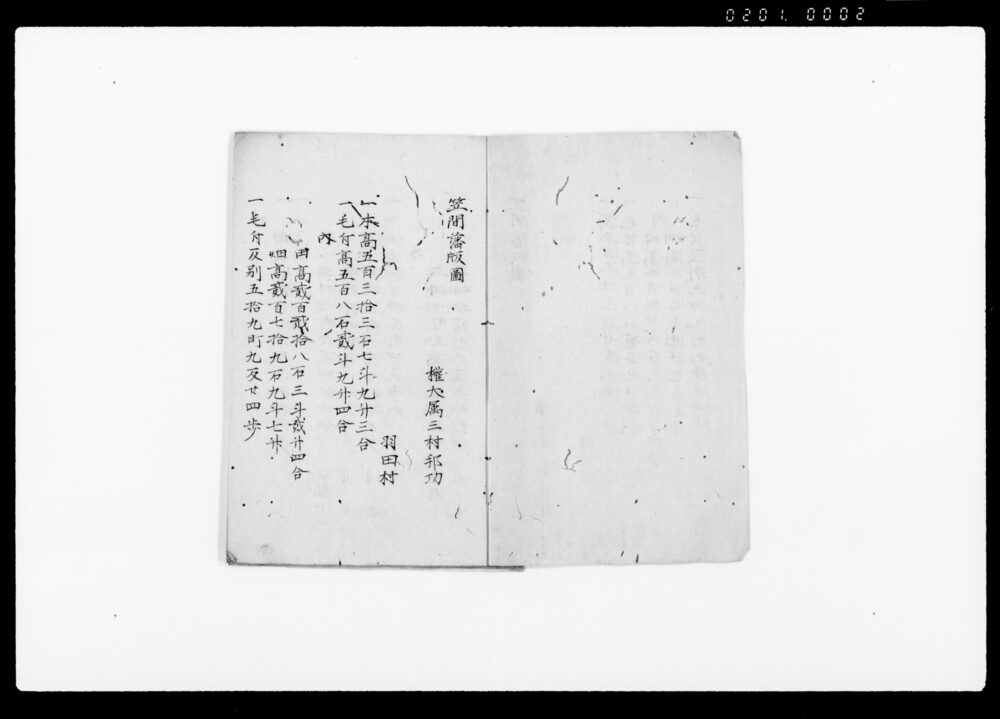 0201. 0002
笠間藩版圖
權大属三村邦功
羽田村
一本高五百三拾三石七斗九升三合
一毛付高五百八石貳斗九升四合
内
田高貳百貳拾八石三斗貳升四合
畑高貳百七拾九石九斗七升
一毛付反別五拾九町九反廿四歩